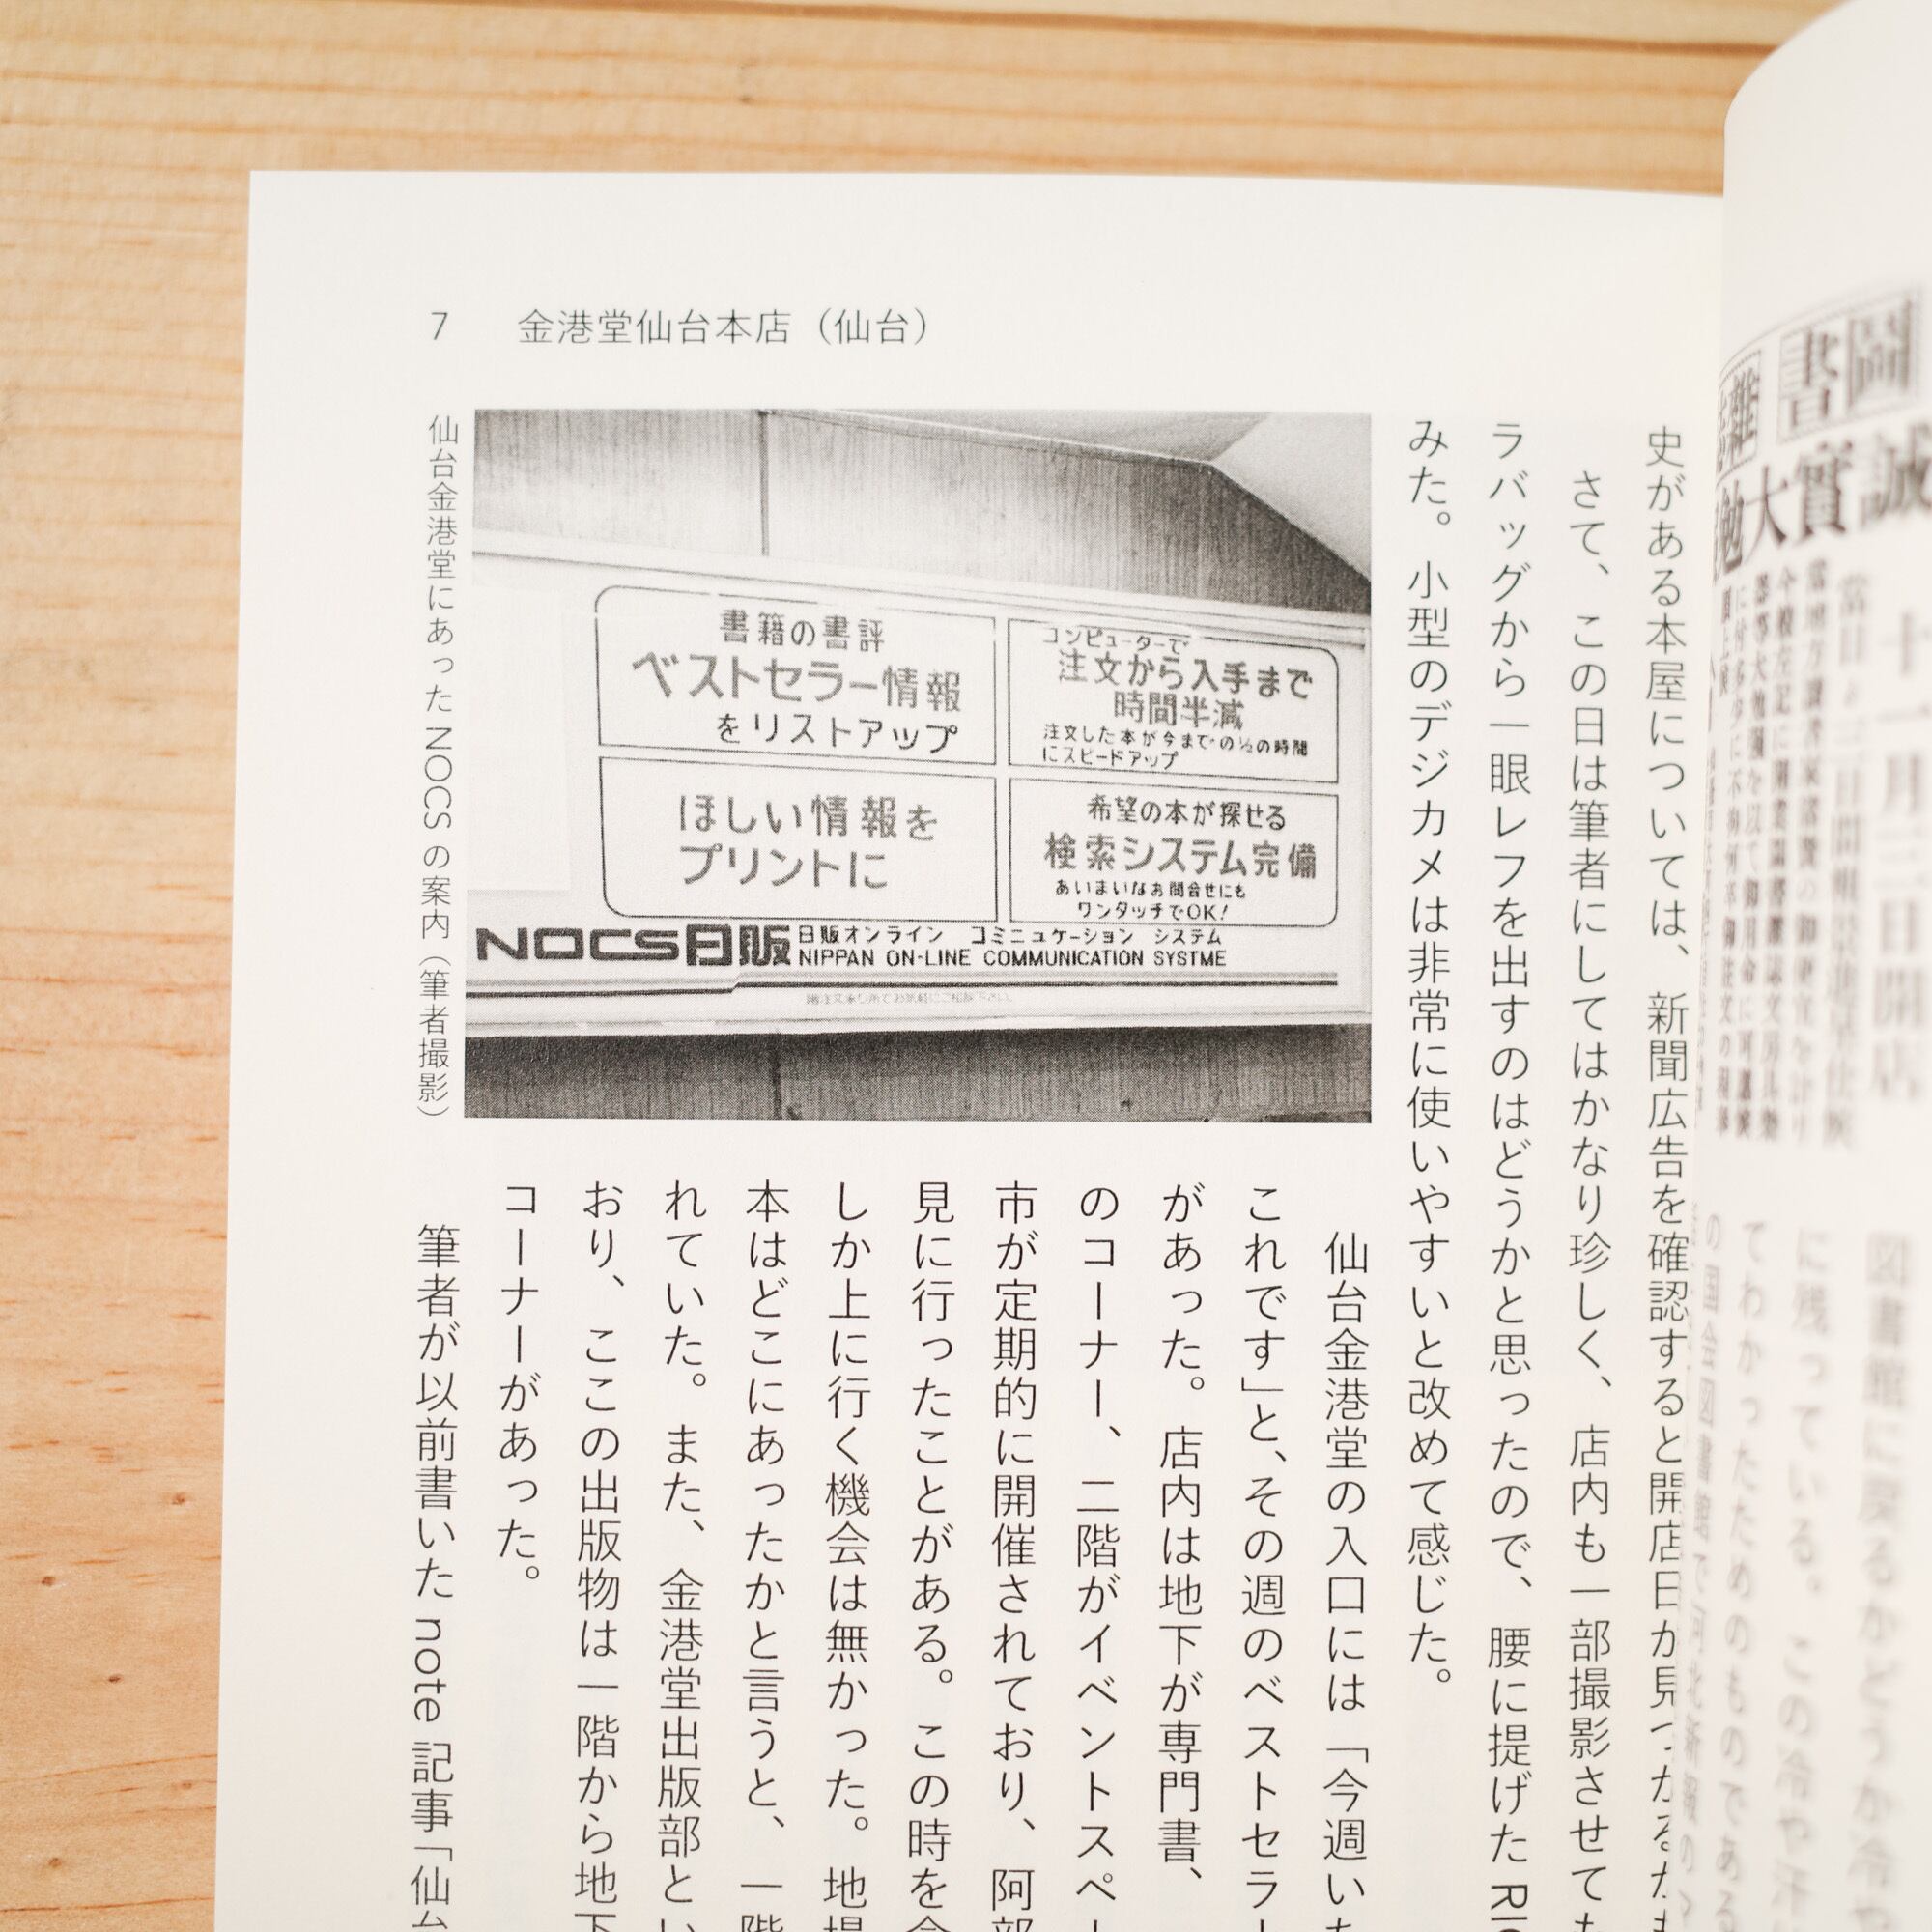 7 金港堂仙台本店（仙台）
史がある本屋については、新聞広告を確認すると開店日が見つかる
さて、この日は筆者にしてはかなり珍しく、店内も一部撮影させても
ラバッグから一眼レフを出すのはどうかと思ったので、腰に提げた
みた。小型のデジカメは非常に使いやすいと改めて感じた。
書籍の書評
ベストセラー情報
をリストアップ
コンピューターで
注文から入手まで
時間半減
注文した本が今までの½の時間
にスピードアップ
ほしい情報を
プリントに
希望の本が探せる
検索システム完備
あいまいなお問合せにも
ワンタッチでOK!
NOCS日販
日販オンライン コミニュケーション システム
NIPPAN ON-LINE COMMUNICATION SYSTME
仙台金港堂にあった NOCS の案内（筆者撮影）
仙台金港堂の入口には「今週い
これです」と、その週のベストセラー
があった。店内は地下が専門書、
のコーナー、二階がイベントスペー
市が定期的に開催されており、阿部
見に行ったことがある。この時を
しか上に行く機会は無かった。地場
本はどこにあったかと言うと、一階
れていた。また、金港堂出版部とい
おり、ここの出版物は一階から地下
コーナーがあった。
筆者が以前書いた note 記事「仙台
圖書
誠實大勉
十一月三日開店
図書館に戻るかどうか
に残っている。この冷や汗
てわかったためのものである